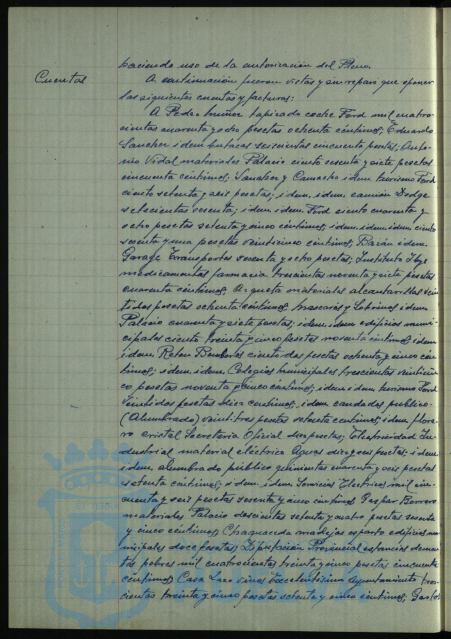 haciendo uso de la autorización del Pleno.
Cuentas
A continuación fueron vistas y sin reparo que oponer
las siguientes cuentas y facturas:
A Pedro Muñoz tapizado coche Ford mil cuatro-
cientas cuarenta y ocho pesetas ochenta céntimos; Eduardo
Sanchez idem butacas seiscientas cincuenta pesetas; Anto-
nio Vidal materiales Palacio ciento sesenta y siete pesetas
cincuenta céntimos; Sanchez y Camacho idem turismo Ford
ciento setenta y seis pesetas; idem, idem camión Dodge
setecientas sesenta; idem idem Ford ciento cuarenta y
ocho pesetas setenta y cinco céntimos; idem idem idem ciento
sesenta y una pesetas veinticinco céntimos; idem
Garage Transportes sesenta y ocho pesetas; Instituto Ibys
medicamentos farmacia trescientas noventa y siete pesetas
cuarenta céntimos; Arqueta materiales alcantarillas vein-
tidos pesetas ochenta céntimos; Mascarós y Sobrinos idem
Palacio cuarenta y siete pesetas; idem idem edificios muni-
cipales ciento treinta y cinco pesetas noventa céntimos; idem
idem Reten Bomberos ciento dos pesetas ochenta y cinco cén-
timos; idem idem Colegios municipales trescientas veinticin-
co pesetas noventa y cinco céntimos; idem idem turismo Ford
veintidos pesetas diez céntimos; idem candados publico
(Alumbrado) veintitres pesetas setenta céntimos; idem flore-
ro cristal Secretaria Oficial dos pesetas; Electricidad In-
dustrial material eléctrico Aguas diez y seis pesetas; idem
idem alumbrado público quinientas cuarenta y seis pesetas
setenta céntimos; idem idem Servicios Electricos mil cin-
cuenta y seis pesetas sesenta y cinco céntimos; Gaspar
materiales Palacio doscientas setenta y cuatro pesetas sesenta
y cinco céntimos; madejas esparto edificios mu-
nicipales doce pesetas; Diputación Provincial estancias demen-
tes pobres mil cuatrocientas treinta y cinco pesetas cincuenta
céntimos; Casa Lazo vinos Excelentísimo Ayuntamiento tres-
cientas treinta y cinco pesetas setenta y cinco céntimos;